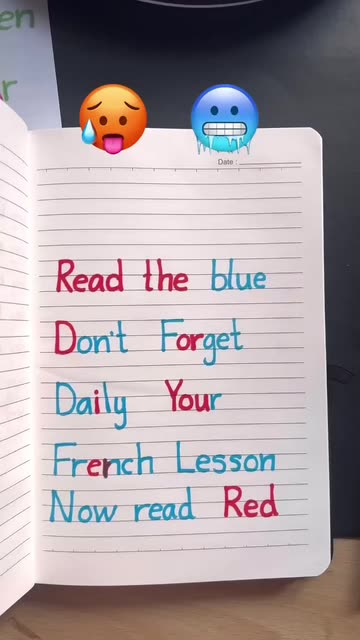 en
r
Date :
Read the blue
Don't Forget
Daily Your
French Lesson
Now read Red